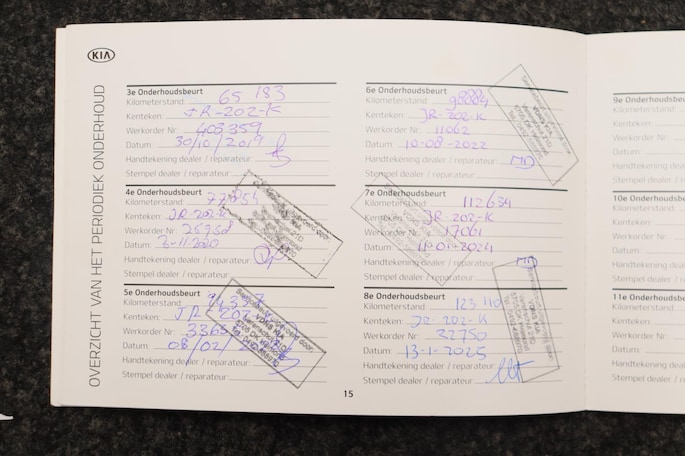 KIA
OVERZICHT VAN HET PERIODIEK ONDERHOUD
3e Onderhoudsbeurt
Kilometerstand: 65 183
Kenteken: JR-202-K
Werkorder Nr: 403359
Datum: 30/10/2019
Handtekening dealer / reparateur:
Stempel dealer / reparateur:
4e Onderhoudsbeurt
Kilometerstand:
Kenteken: JR-202-K
Werkorder Nr:
Datum: 2-11-2020
Handtekening dealer / reparateur:
Stempel dealer / reparateur:
5e Onderhoudsbeurt
Kilometerstand:
Kenteken: JR 202
Werkorder Nr:
Datum: 08/02/
Handtekening dealer / reparateur:
Stempel dealer / reparateur:
6e Onderhoudsbeurt
Kilometerstand:
Kenteken: JR-202-K
Werkorder Nr: 11062
Datum: 10-08-2022
Handtekening dealer / reparateur: MD
Stempel dealer / reparateur:
7e Onderhoudsbeurt
Kilometerstand: 112634
Kenteken: JR 202-K
Werkorder Nr: 17061
Datum: 11-01-2024
Handtekening dealer / reparateur: MD
Stempel dealer / reparateur:
8e Onderhoudsbeurt
Kilometerstand: 123 110
Kenteken: JR-202-K
Werkorder Nr: 32750
Datum: 13-1-2025
Handtekening dealer / reparateur:
Stempel dealer / reparateur:
15
9e
Kilometerstand:
Kenteken:
Werkorder Nr:
Datum:
Handtekening
Stempel dealer
10e
Kilometerstand
Kenteken:
Werkorder Nr:
Datum:
Handtekening
Stempel dealer
11e
Kilometerstand
Kenteken:
Werkorder Nr:
Datum:
Handtekening
Stempel